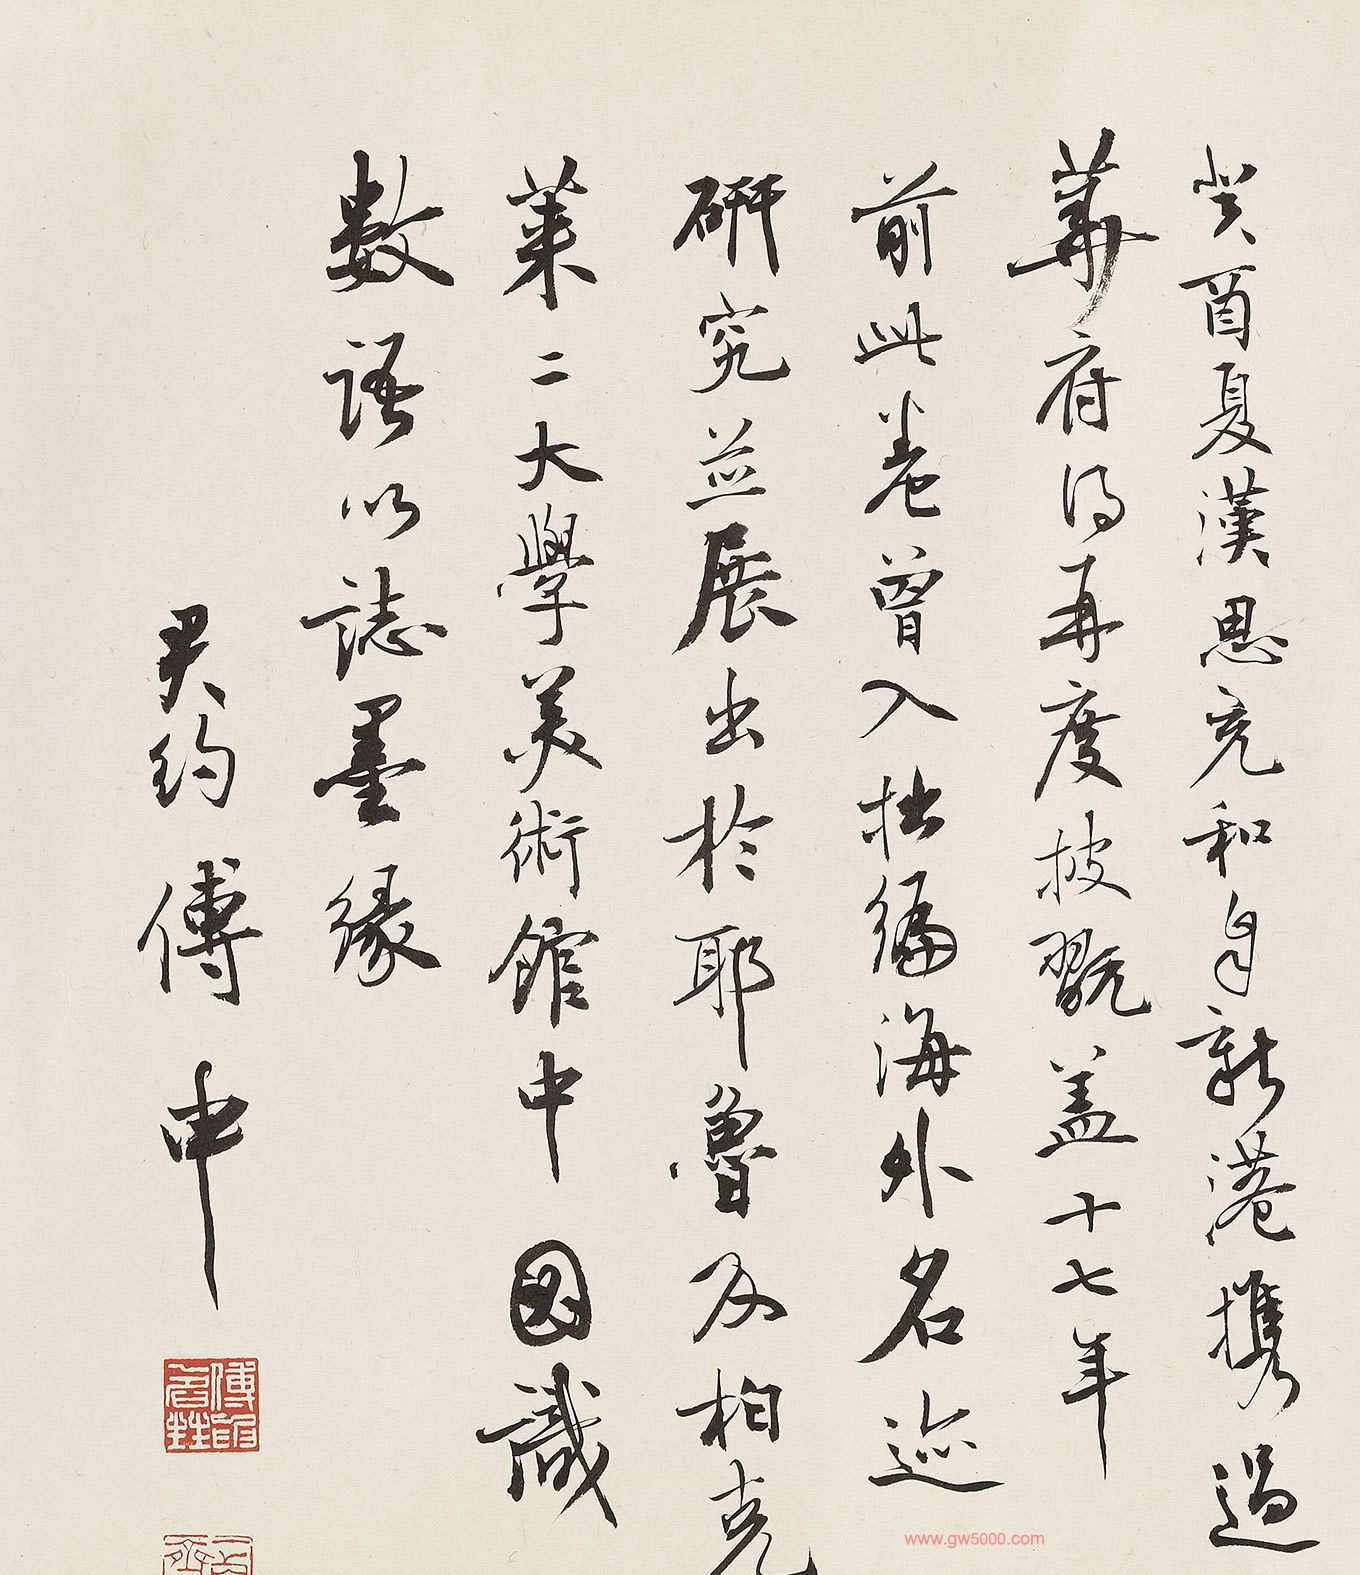 癸酉夏漢思充和自新港攜過
華府得再度披翫蓋十七年
前此卷曾入拙編海外名迹
研究並展出於耶魯及柏克
萊二大學美術館中國識
數語以誌墨緣
君約傅申
傅申
www.gw5000.com